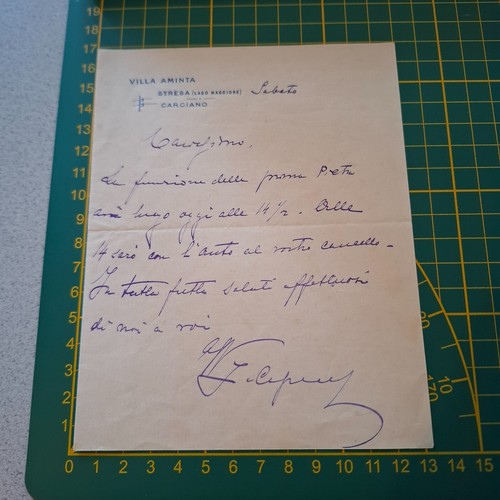 VILLA AMINTA
STRESA (LAGO MAGGIORE) Sabato
CARCIANO
Carissimo.
La funzione della prima Pietra
avrà luogo oggi alle 14 1/2. Alle
14 sarò con l'auto al vostro cancello -
In tutta fretta saluti affettuosi
di noi a voi
19
18
17
16
15
14
13
12
11
10
9
8
7
6
5
4
3
2
1
0
0 1 2 3 4 5 6 7 8 9 10 11 12 13 14 15